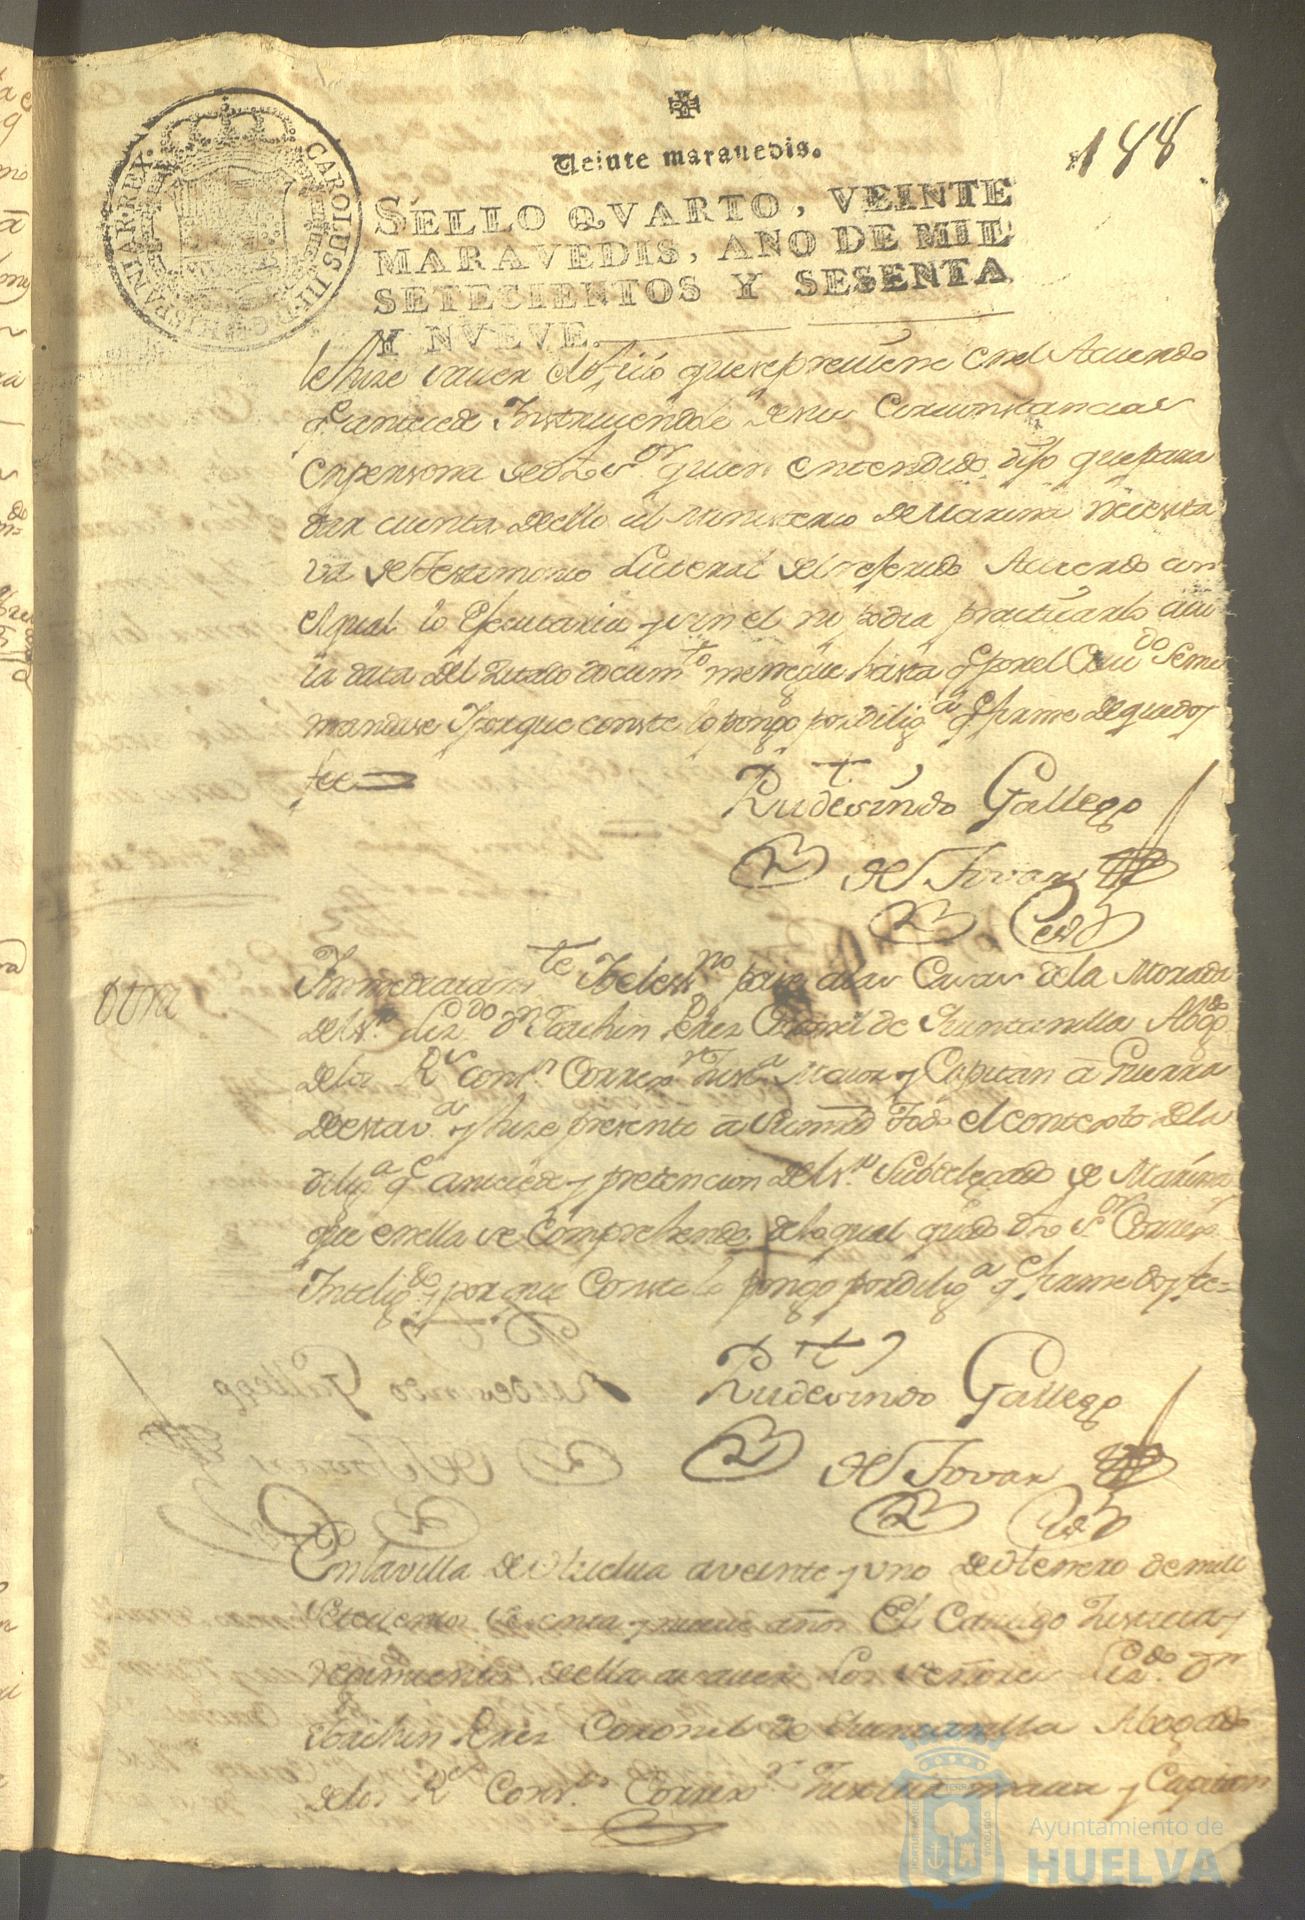 188
Veinte maravedis.
SELLO QVARTO, VEINTE
MARAVEDIS, AÑO DE MIL
SETECIENTOS Y SESENTA
Y NVEVE.
CAROLUS III D G HISPANIAR REX
le hize saver el oficio que se previene en el Acuerdo
q.e antecede Instruyendole de sus Circunstancias
en persona de d.ho s.or quien entendido dijo que para
dar cuenta de ello al Ministerio de Marina necesita
va de Testimonio Litteral del referido Acuerdo con
el qual lo Ejecutaria y sin el no podra practicarlo
la data del zitado docum.to hasta q.e por el Cavi.do se me
mandase Y para que conste lo pongo por dilig.a q.e firme de que doy
fee
Rudesindo Gallego
de Tovar
Otra
Inmediatam.te Yo el ess.no pase a las Casas de la Morada
del s.r Liz.do d.n Joachin Perez Coronel de Huntanilla Abog.do
de los R.s Cons.s Correx.r Just.a Maior y Capitan à Guerra
de esta v.a y hize presente à su mrd todo el contexto de la
dilig.a q.e antecede y pretencion del s.r Subdelegado de Marina
que en ella se Comprehende, de lo qual quedo d.ho s.or Correx.or
Intelig.do y por que Conste lo pongo por dilig.a q.e firme doy fe=
Rudesindo Gallego
de Tovar
En la villa de Huelva a veinte y uno de Henero de mill
setecientos sesenta y nueve años El Cavildo Justicia y
reximiento de ella a saver Los señores Liz.do d.n
Joachin Perez Coronel de Huntanilla Abogado
de los R.s Cons.s Correx.r Justicia maior y Capitan
Ayuntamiento de
HUELVA